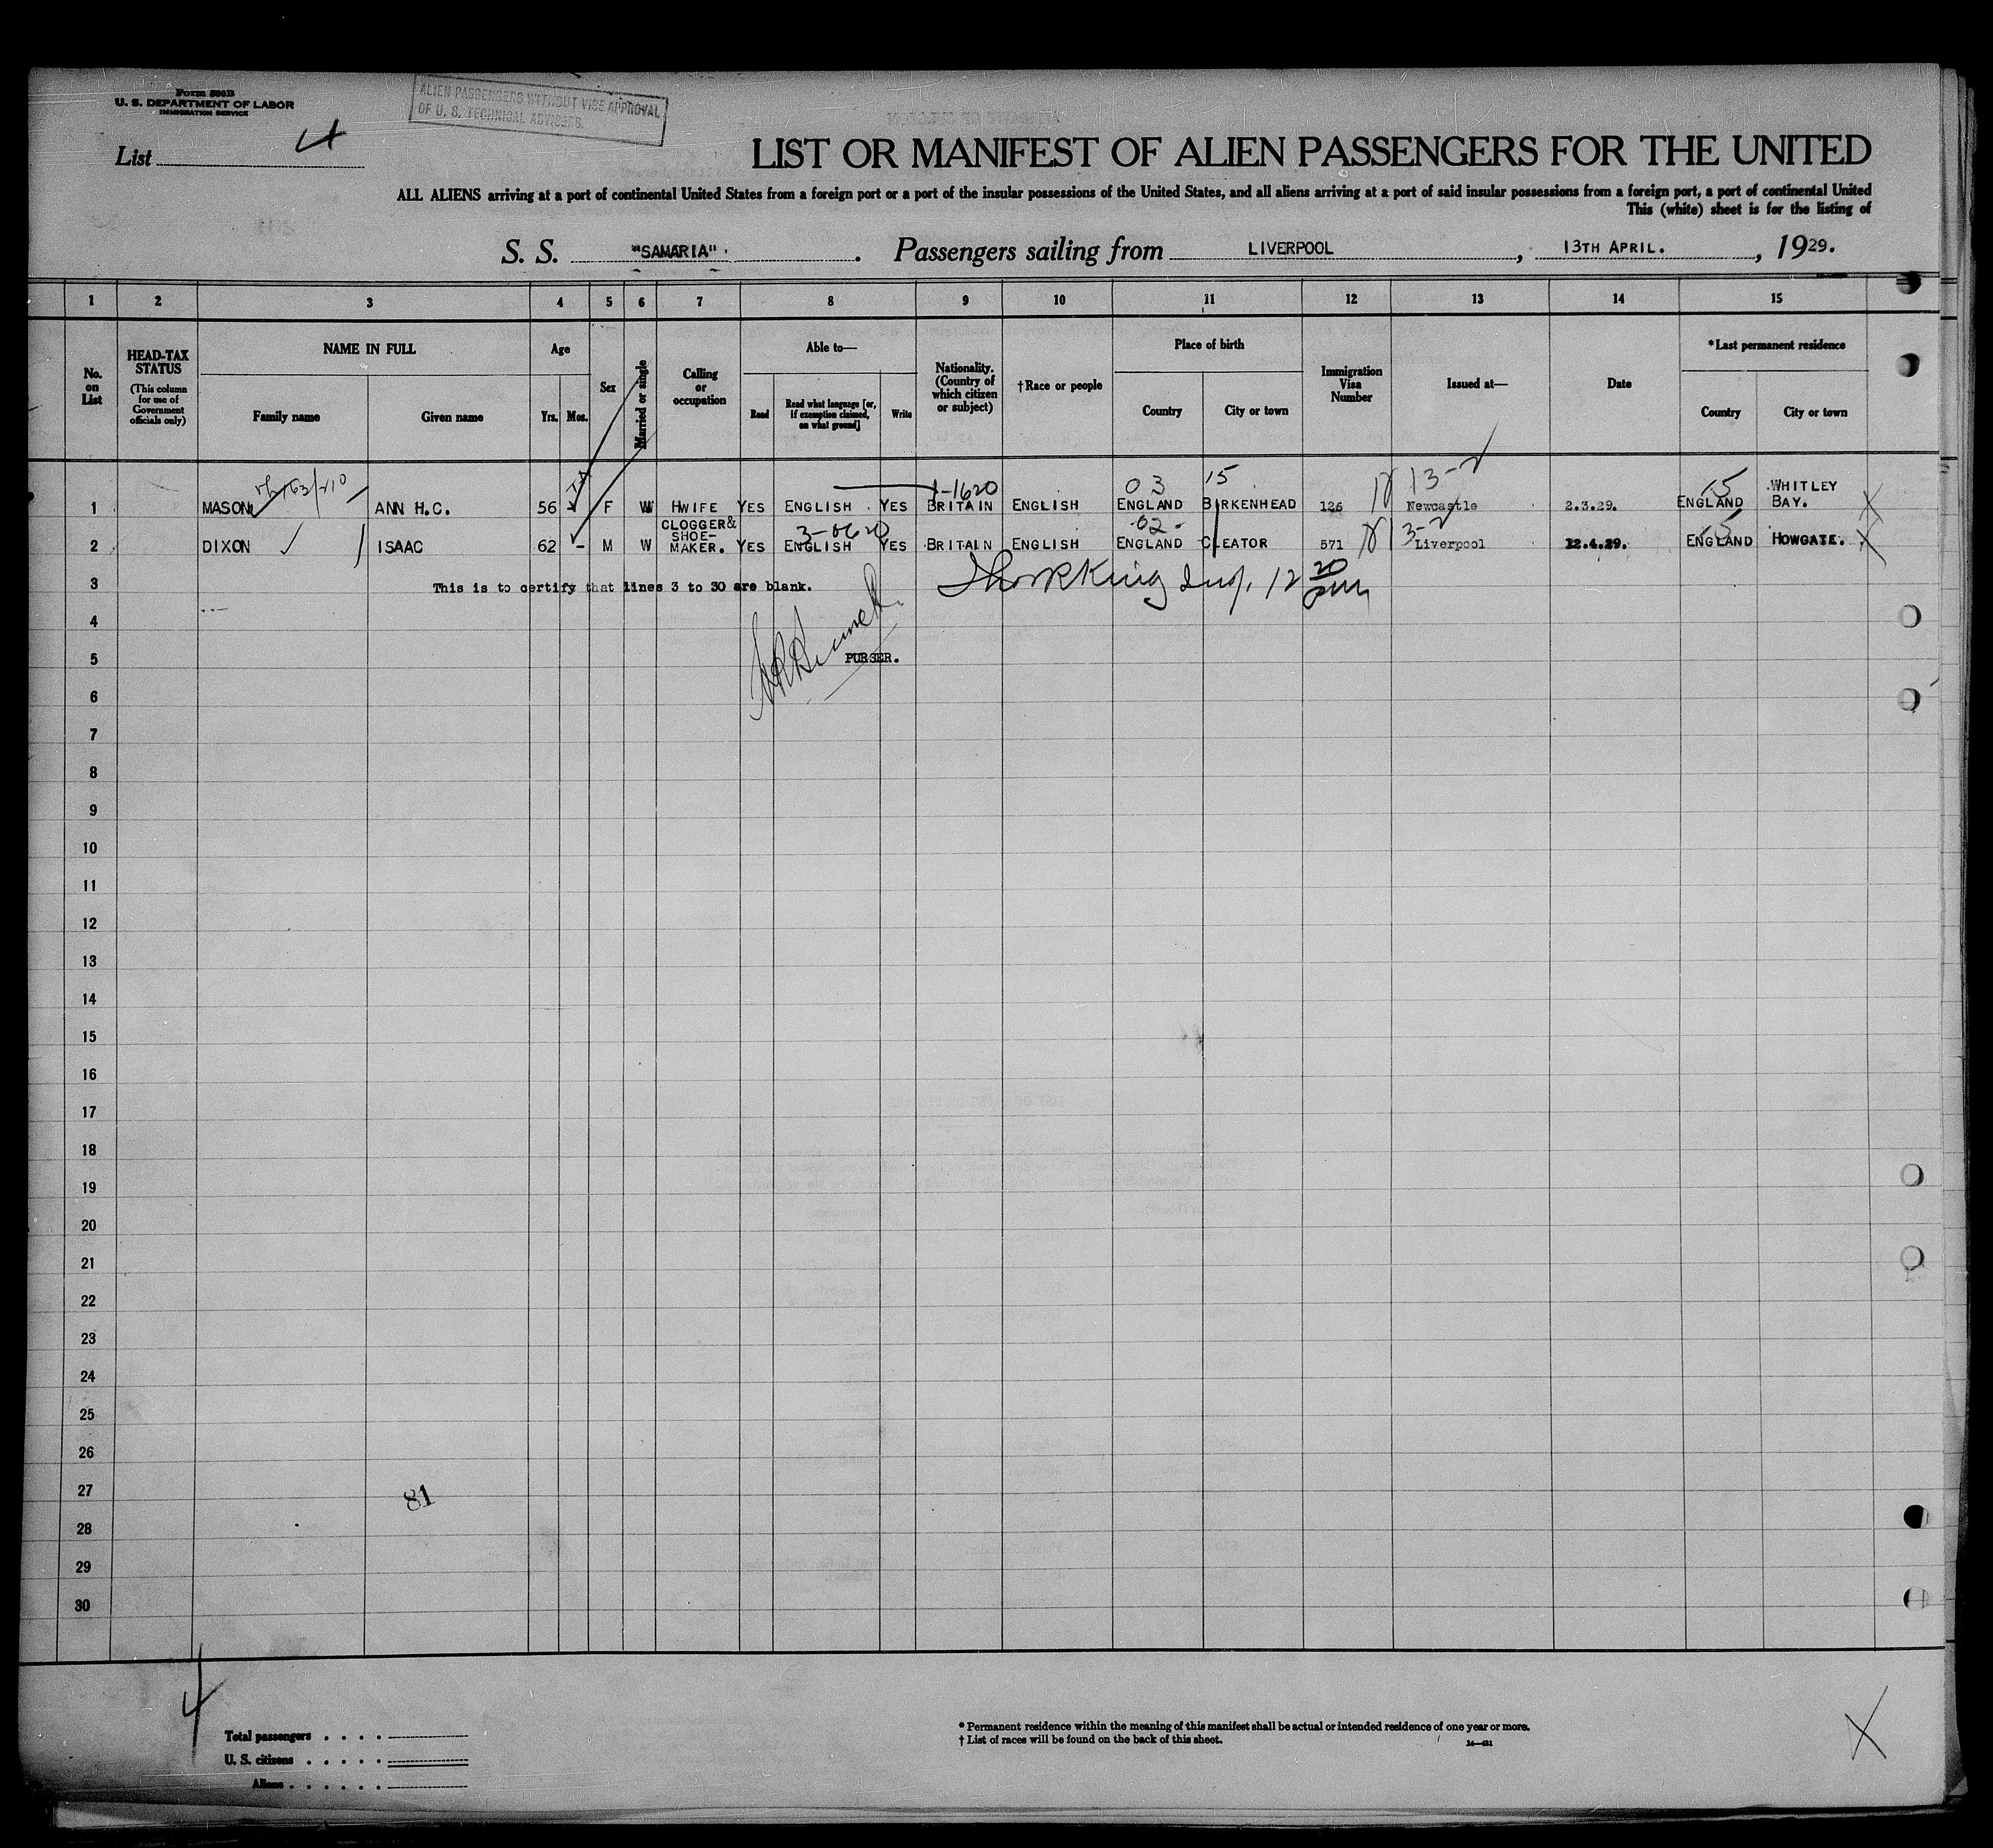 Form 500B
U. S. DEPARTMENT OF LABOR
IMMIGRATION SERVICE
ALIEN PASSENGERS WITHOUT VISE APPROVAL
OF U. S. TECHNICAL ADVISERS.
List 4
LIST OR MANIFEST OF ALIEN PASSENGERS FOR THE UNITED
ALL ALIENS arriving at a port of continental United States from a foreign port or a port of the insular possessions of the United States, and all aliens arriving at a port of said insular possessions from a foreign port, a port of continental United
This (white) sheet is for the listing of
S. S. "SAMARIA". Passengers sailing from LIVERPOOL, 13TH APRIL., 1929.
1 2 3 4 5 6 7 8 9 10 11 12 13 14 15
No. on List
HEAD-TAX STATUS
(This column for use of Government officials only)
NAME IN FULL
Family name Given name
Age
Yrs. Mos.
Sex
Married or single
Calling or occupation
Able to—
Read
Read what language [or, if exemption claimed, on what ground]
Write
Nationality. (Country of which citizen or subject)
†Race or people
Place of birth
Country City or town
Immigration Visa Number
Issued at—
Date
*Last permanent residence
Country City or town
1-1620 03 15 13-2 15
1 MASON ANN H.C. 56 F W HWIFE YES ENGLISH YES BRITAIN ENGLISH ENGLAND BIRKENHEAD 126 Newcastle 2.3.29. ENGLAND WHITLEY BAY.
3-0620 02- 13-2 15
2 DIXON ISAAC 62 - M W CLOGGER& SHOE-MAKER. YES ENGLISH YES BRITAIN ENGLISH ENGLAND CLEATOR 571 Liverpool 12.4.29. ENGLAND HOWGATE.
3 This is to certify that lines 3 to 30 are blank.
12 20
4
5 PURSER.
6
7
8
9
10
11
12
13
14
15
16
17
18
19
20
21
22
23
24
25
26
27
81
28
29
30
4
Total passengers . . . .
U. S. citizens . . . . .
Aliens . . . . . .
* Permanent residence within the meaning of this manifest shall be actual or intended residence of one year or more.
† List of races will be found on the back of this sheet.
X